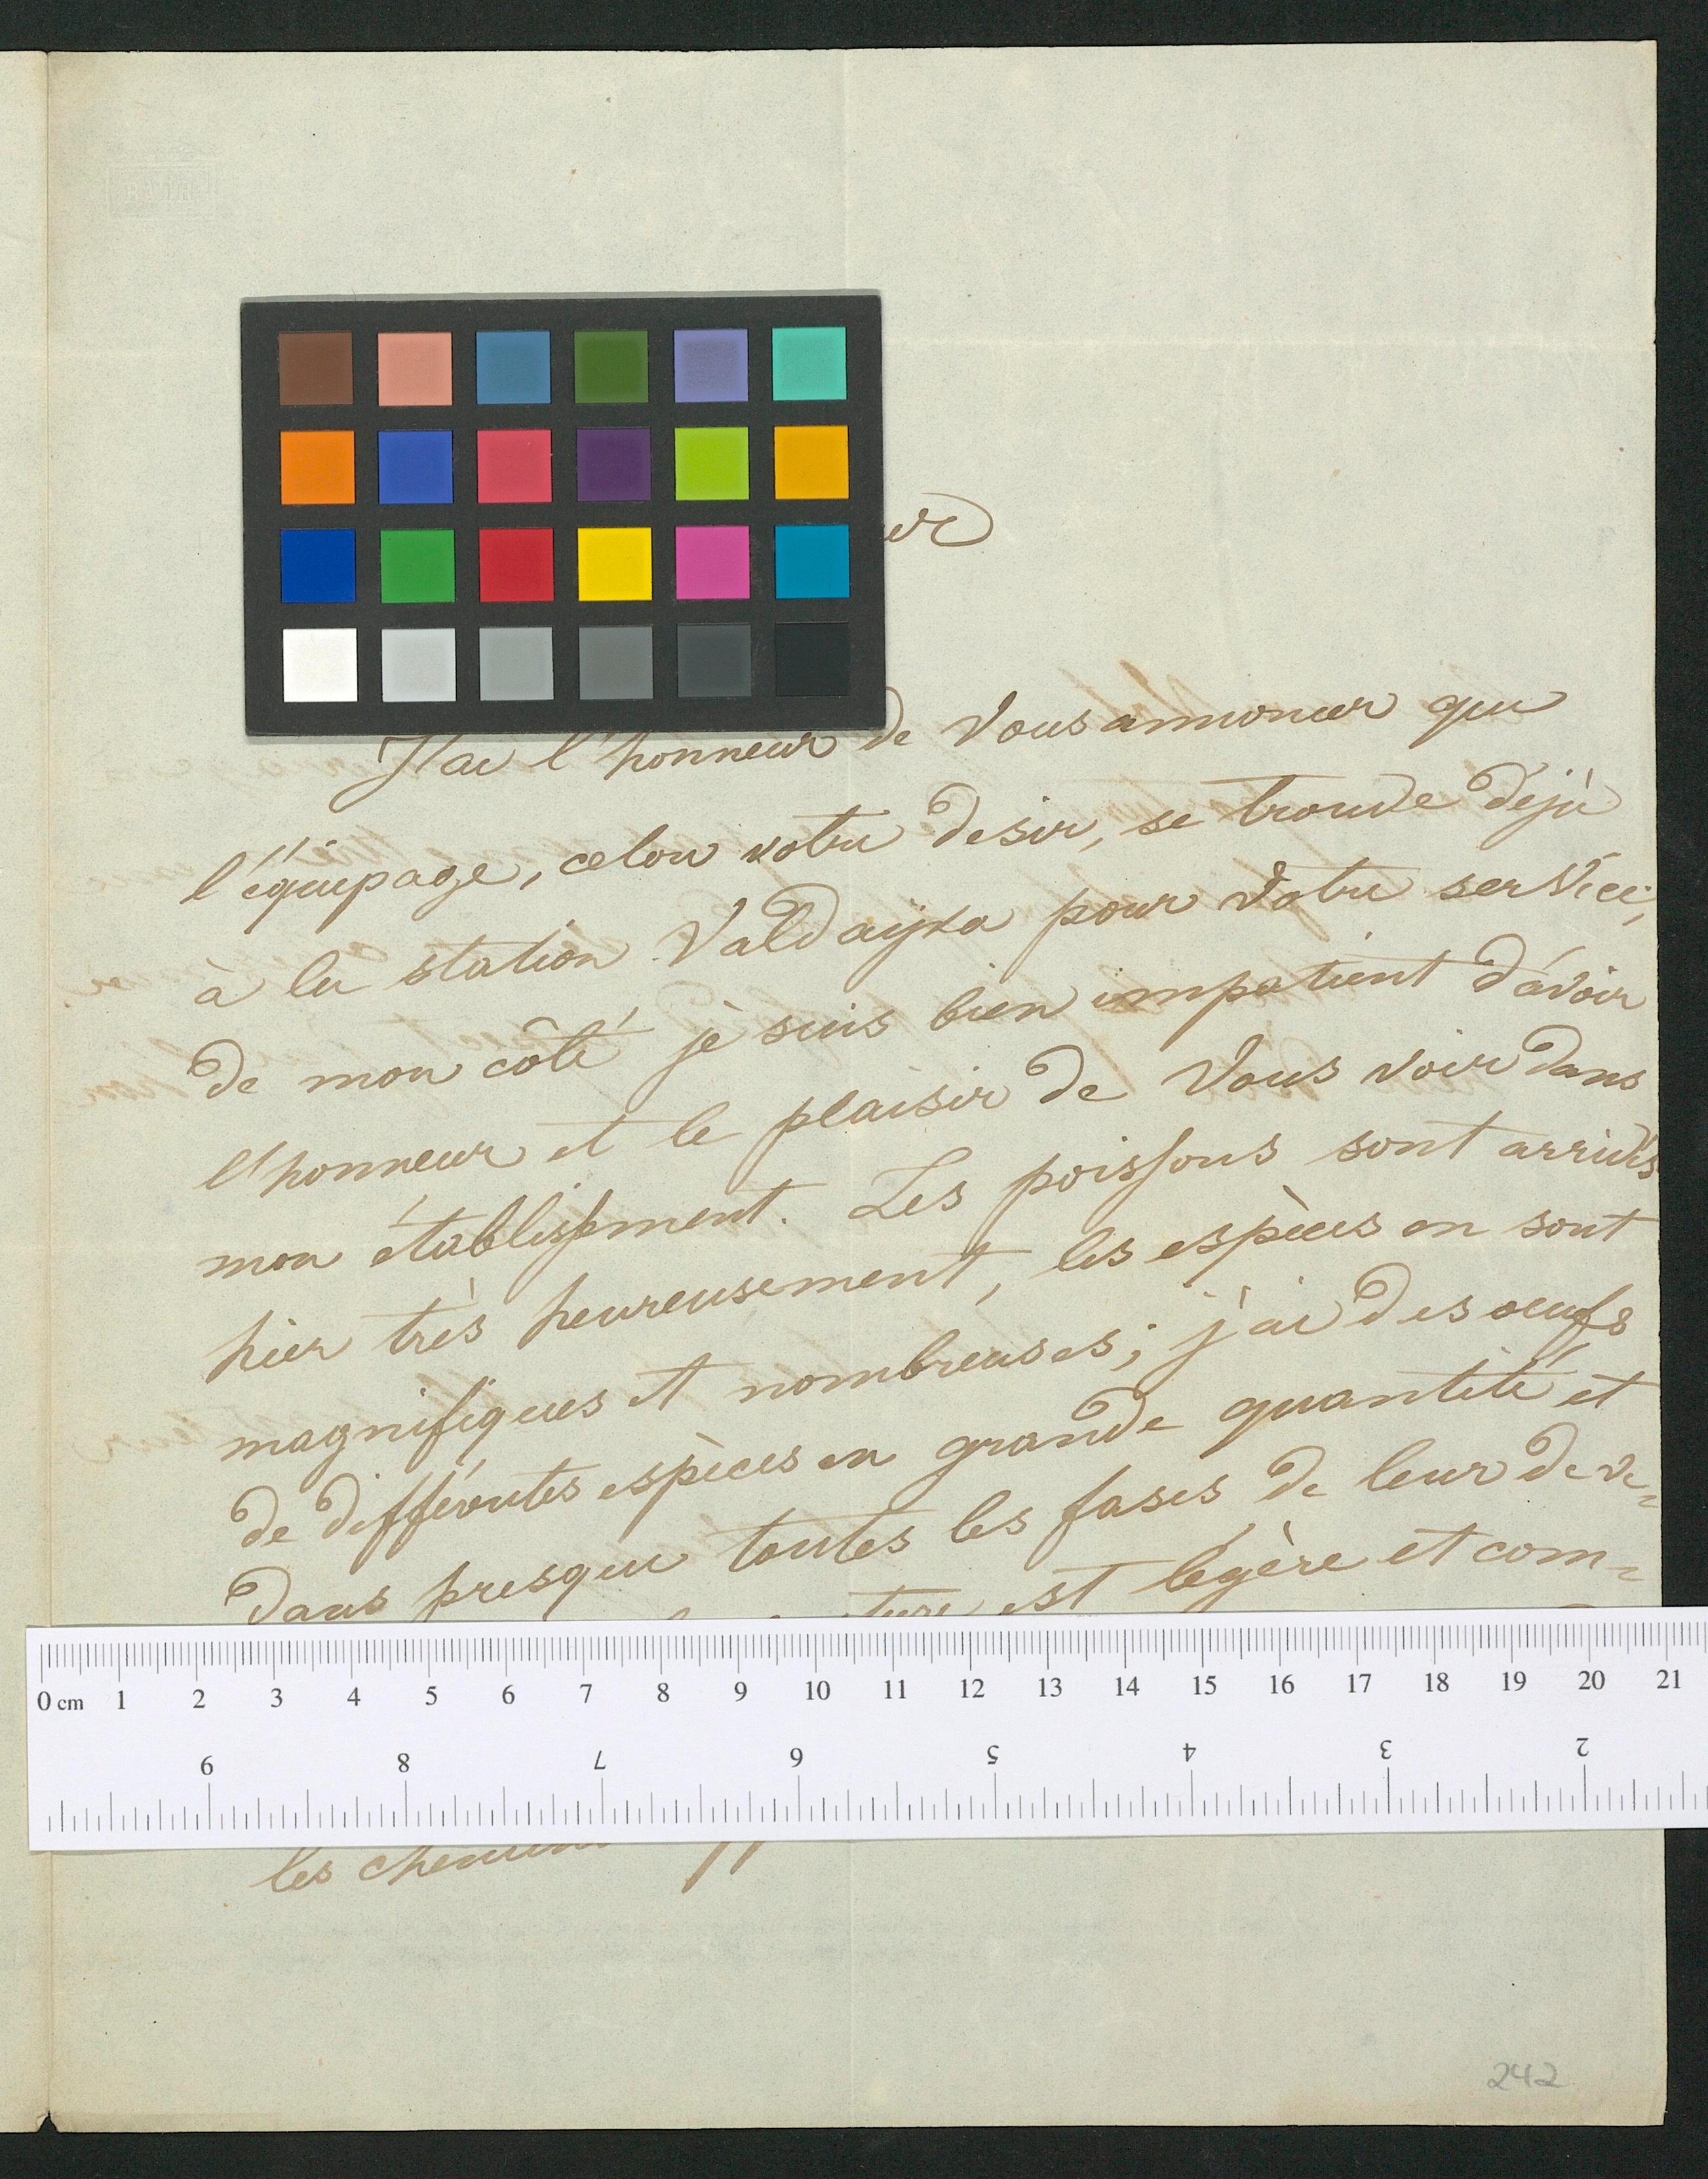 J'ai l'honneur de Vous annoncer que
l'équipage, celon votre desir, se trouve déjà
à la station Valdaÿka pour Votre service,
de mon côté je suis bien impatient d'avoir
l'honneur et le plaisir de Vous voir dans
mon établissement. Les poissons sont arrivés
hier très heureusement, les espèces en sont
magnifiques et nombreuses; j'ai des oeufs
de différentes espèces en grande quantité et
dans presque toutes les fases de leur deve-
est légère et com-
0 cm 1 2 3 4 5 6 7 8 9 10 11 12 13 14 15 16 17 18 19 20 21
9 8 7 6 5 4 3 2
les
242